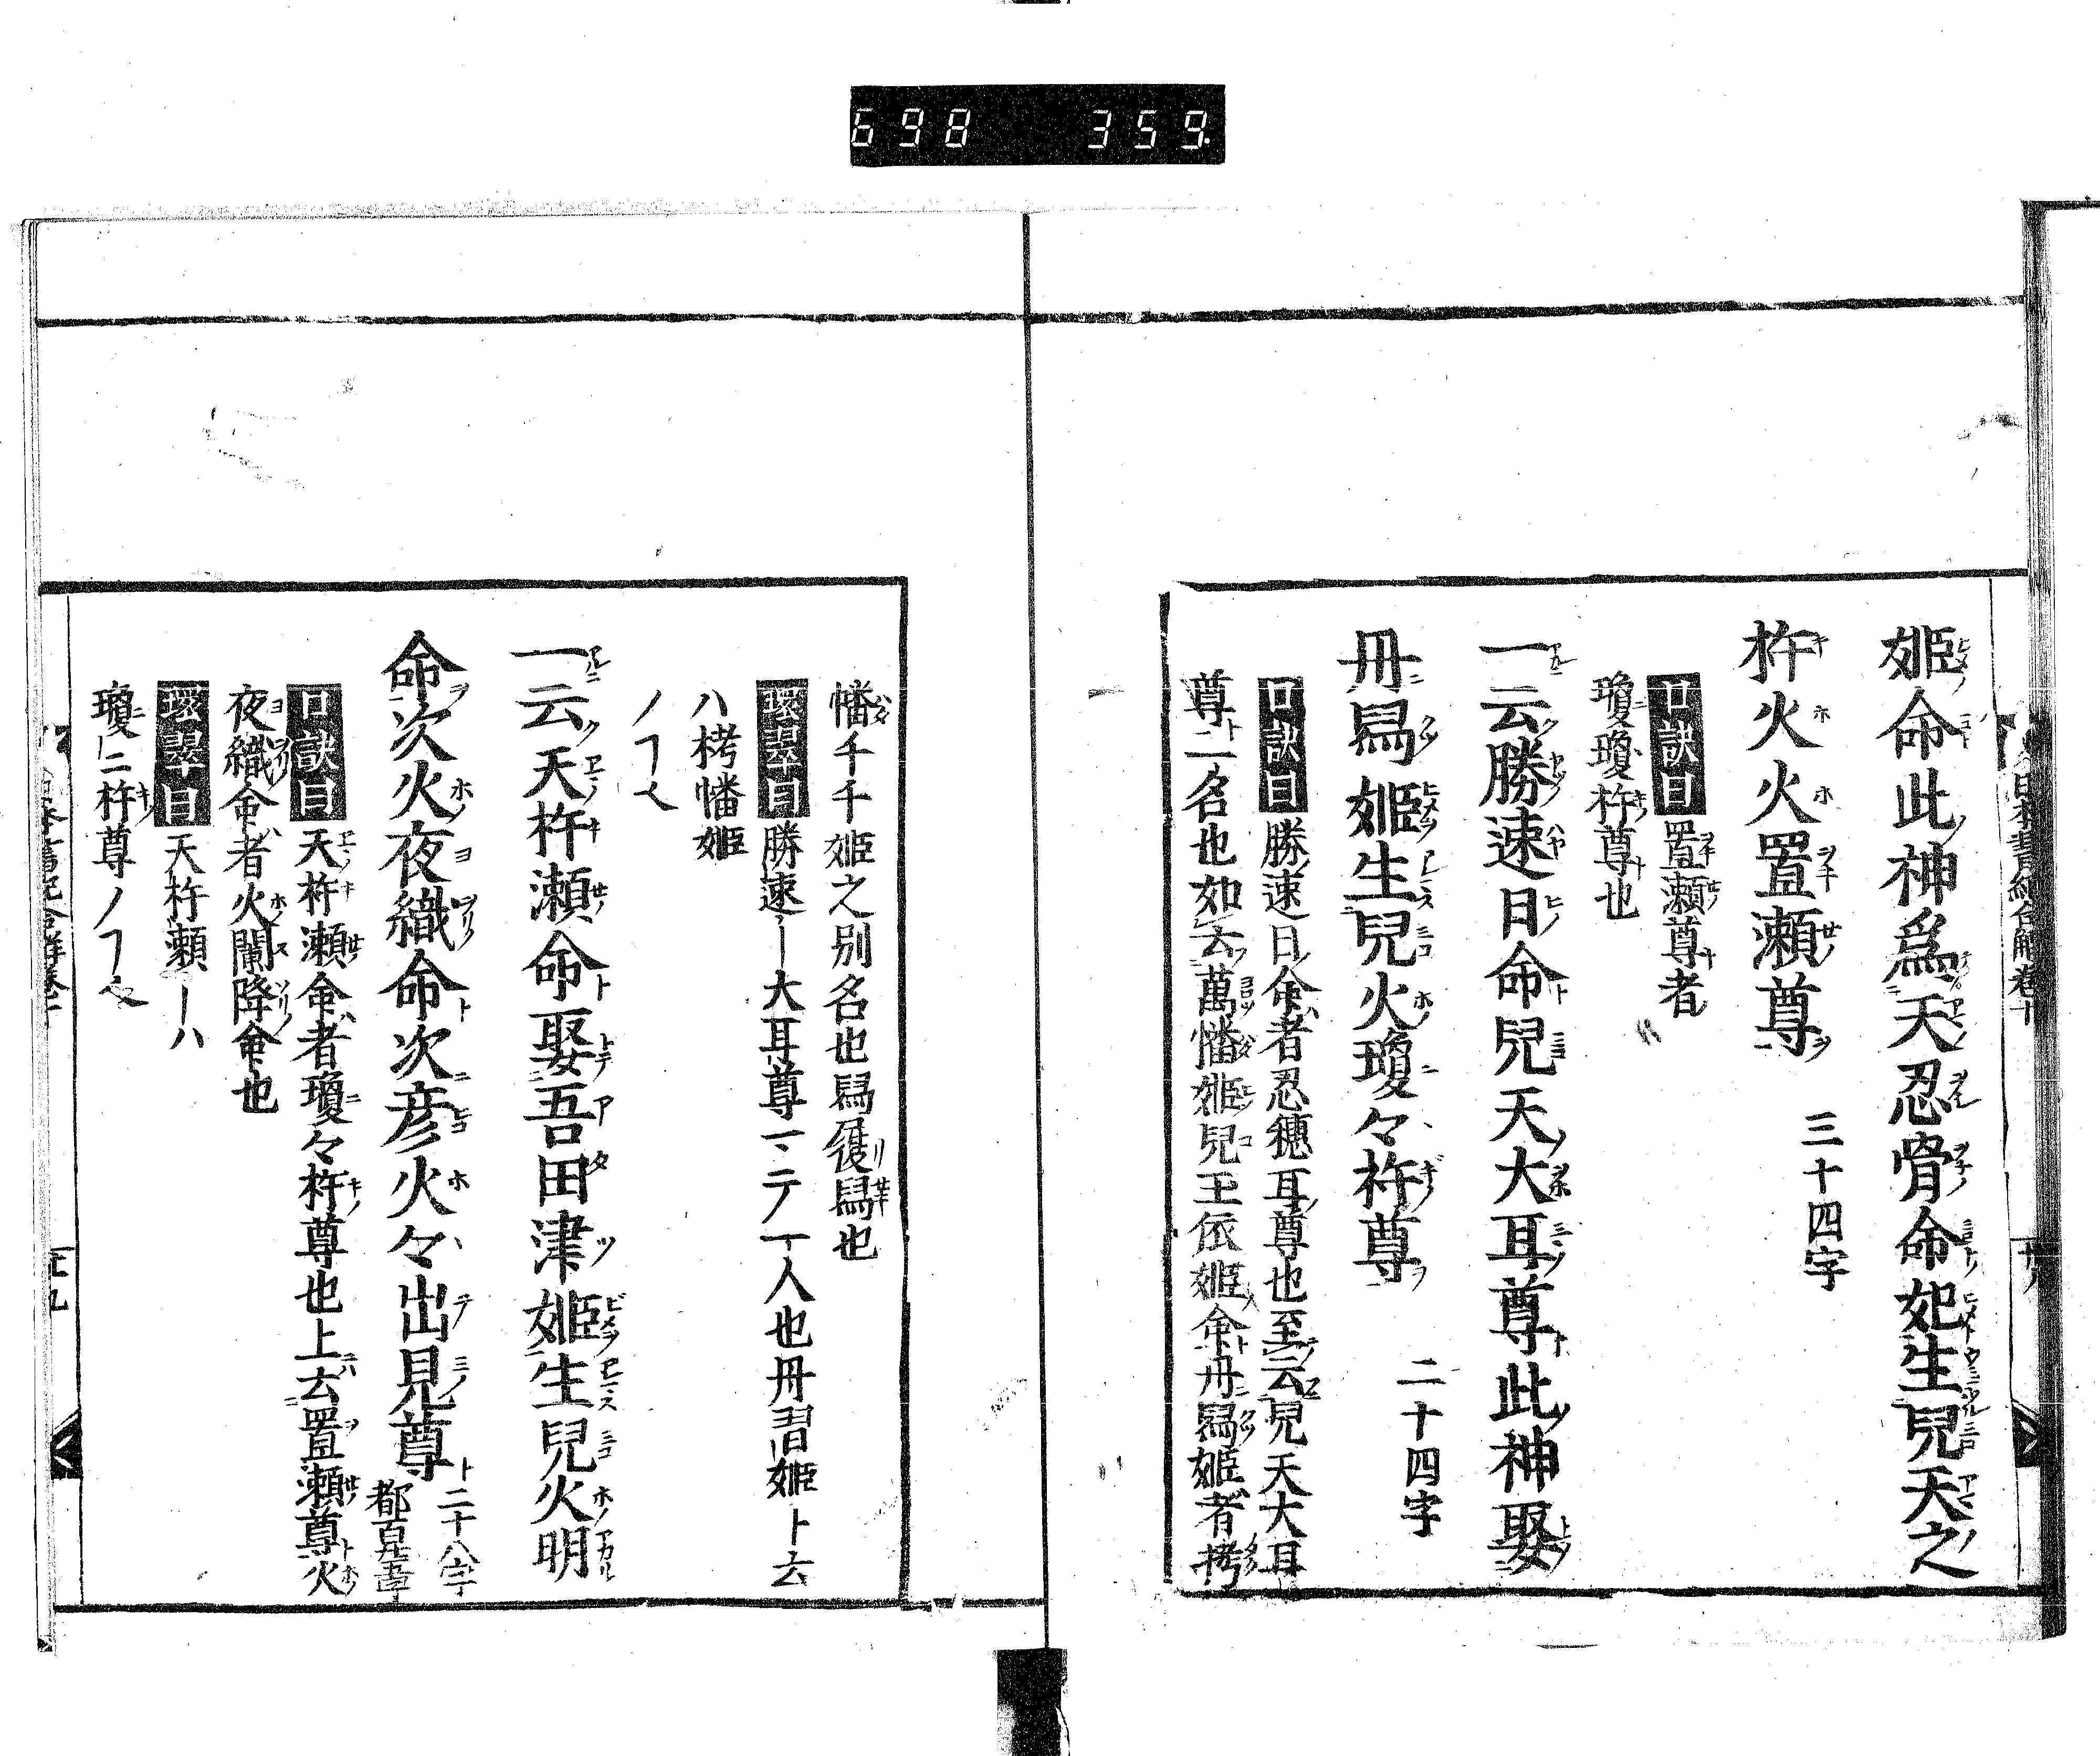 698 359.
姬命此神爲天忍骨命妃生兒天之
杵火火置瀬尊 三十四字
口訣曰置瀬尊者
瓊瓊杵尊也
一云勝速日命兒天大耳尊此神娶
丹舄姬生兒火瓊々杵尊 二十四字
口訣曰勝速日命者忍穗耳尊也至云兒天大耳
尊二名也如云萬幡姬兒玉依姬命丹舄姬者栲
幡千千姬之別名也舄履舄也
環翠曰勝速〡大耳尊一、二テ一人也丹舄姬ト云
ハ栲幡姬
ノヿヘ
一云天杵瀬命娶吾田津姬生兒火明
命次火夜織命次彦火々出見尊 二十八字
口訣曰天杵瀬命者瓊々杵尊也上云置瀬尊火
夜織命者火闌降命也
環翠曰天杵瀬〡ハ
瓊二杵尊ノヿヘ